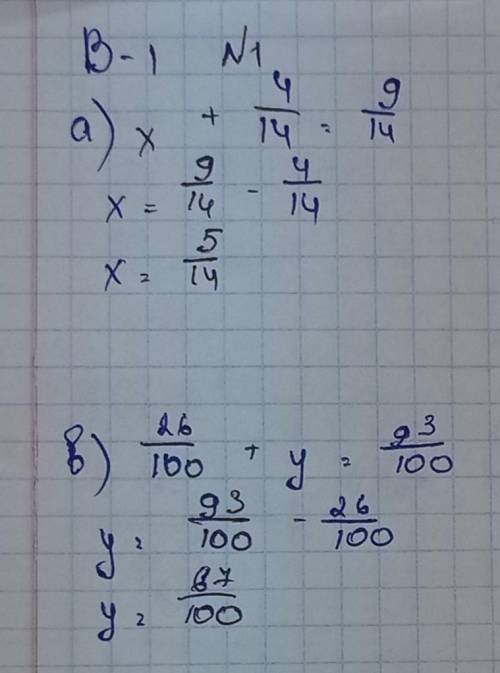 В-1 N1
а) x + 4/14 = 9/14
x = 9/14 - 4/14
x = 5/14
в) 26/100 + y = 93/100
y = 93/100 - 26/100
y = 67/100